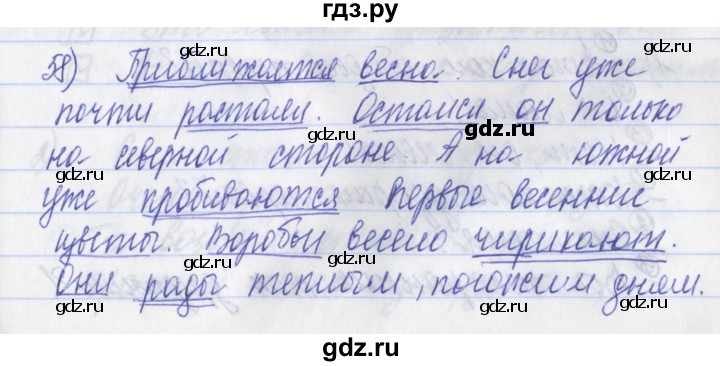 гдз.ру
58) Приближается весна. Снег уже
почти растаял. Остался он только
на северной стороне А на южной
уже пробиваются первые весенние
цветы. Воробьи весело чирикают.
Они рады теплым, погожим дням.
gdz.ru
gdz.ru
gdz.ru
gdz.ru
gdz.ru
gdz.ru
gdz.ru
gdz.ru
gdz.ru
gdz.ru
gdz.ru
gdz.ru